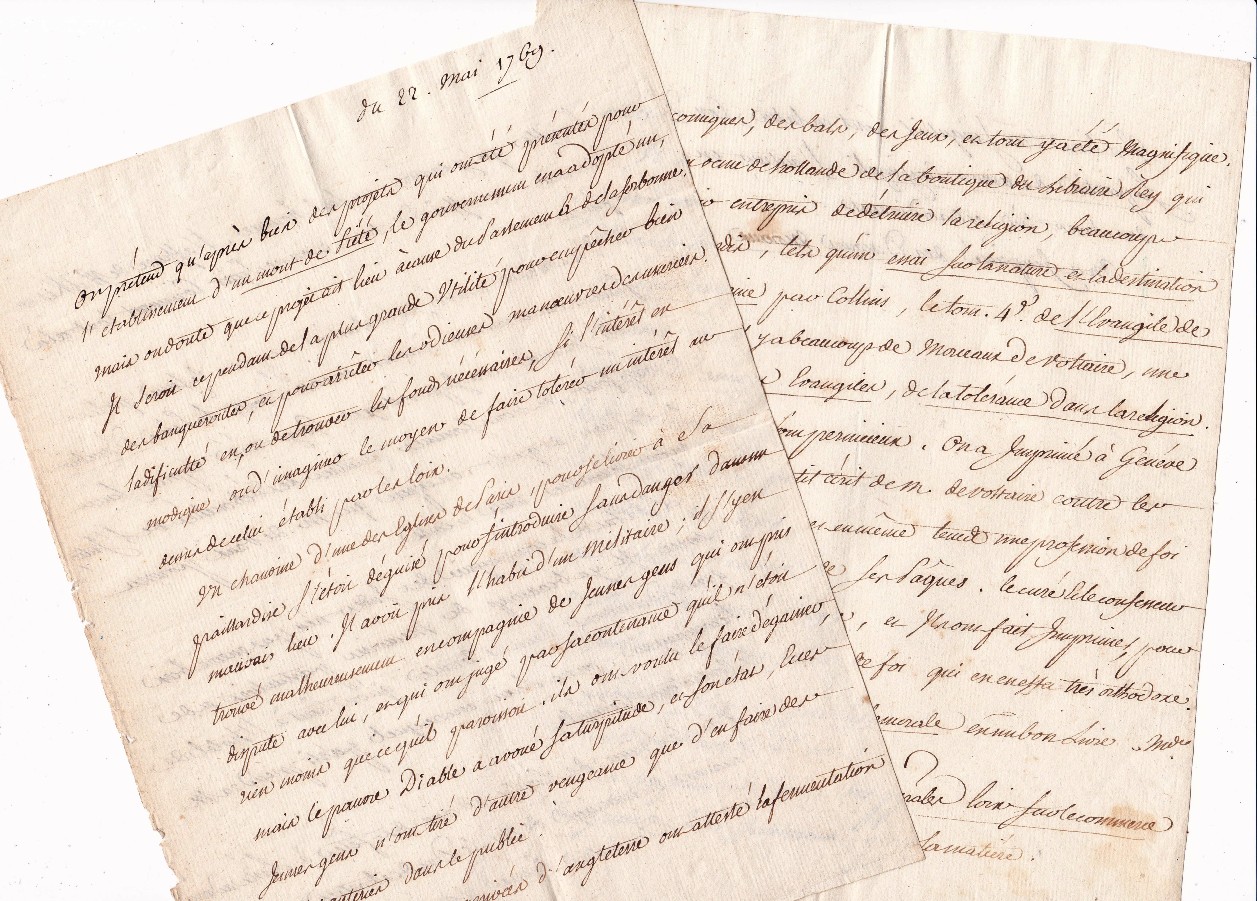 du 22. Mai 1769.
On prétend qu'après bien des projets qui ont été présentés pour
l'etablissement d'un mont de piété, le gouvernement en a adopté un,
mais on doute que ce projet ait lieu à cause du Parlement & de la sorbonne.
Il seroit cependant de la plus grande Utilité pour empêcher bien
des banqueroutes, et pour arrêter les odieuses manœuvres des usuriers.
la dificulté en, ou de trouver les fonds nécéssaires, si l'intérêt en
modique, ou d'imaginer le moyen de faire tolérer un intérêt au
dessus de celui établi par les loix.
Un chanoine d'une des Eglises de Paris, pour se livrer à sa
paillardise s'étoit déguisé pour s'introduire sans danger dans un
mauvais lieu. Il avoit pris l'habit d'un Militaire; il s'y en
trouvé malheureusement en compagnie de Jeunes gens qui ont pris
dispute avec lui, et qui ont jugé par sa contenance qu'il n'étoit
rien moins que ce qu'il paroissoit. ils ont voulu le faire dégainer,
mais le pauvre Diable a avoué sa turpitude, et son état, et ces
Jeunes gens n'ont tiré d'autre vengeance que d'en faire des
dans le public.
d'angleterre ont attesté la fermentation
comiques, des bals, des Jeux, et tout y a été Magnifique.
de hollande de la boutique du Libraire Rey qui
entrepris de détruire la religion, beaucoup
tels qu'un essai sur la nature et la destination
par Collins, le tom. 4e. de l'Evangile de
y a beaucoup de Morceaux de voltaire, une
Evangiles, de la tolérance dans la religion.
pernicieux. On a Imprimé à Genève
écrit de m. de voltaire contre les
en même tems une profession de foi
ses Pâques. le curé & le confesseur
et Ils ont fait Imprimer pour
foi qui en en effet très orthodoxe.
en un bon Livre. Mde
loix sur le commerce
la matière.